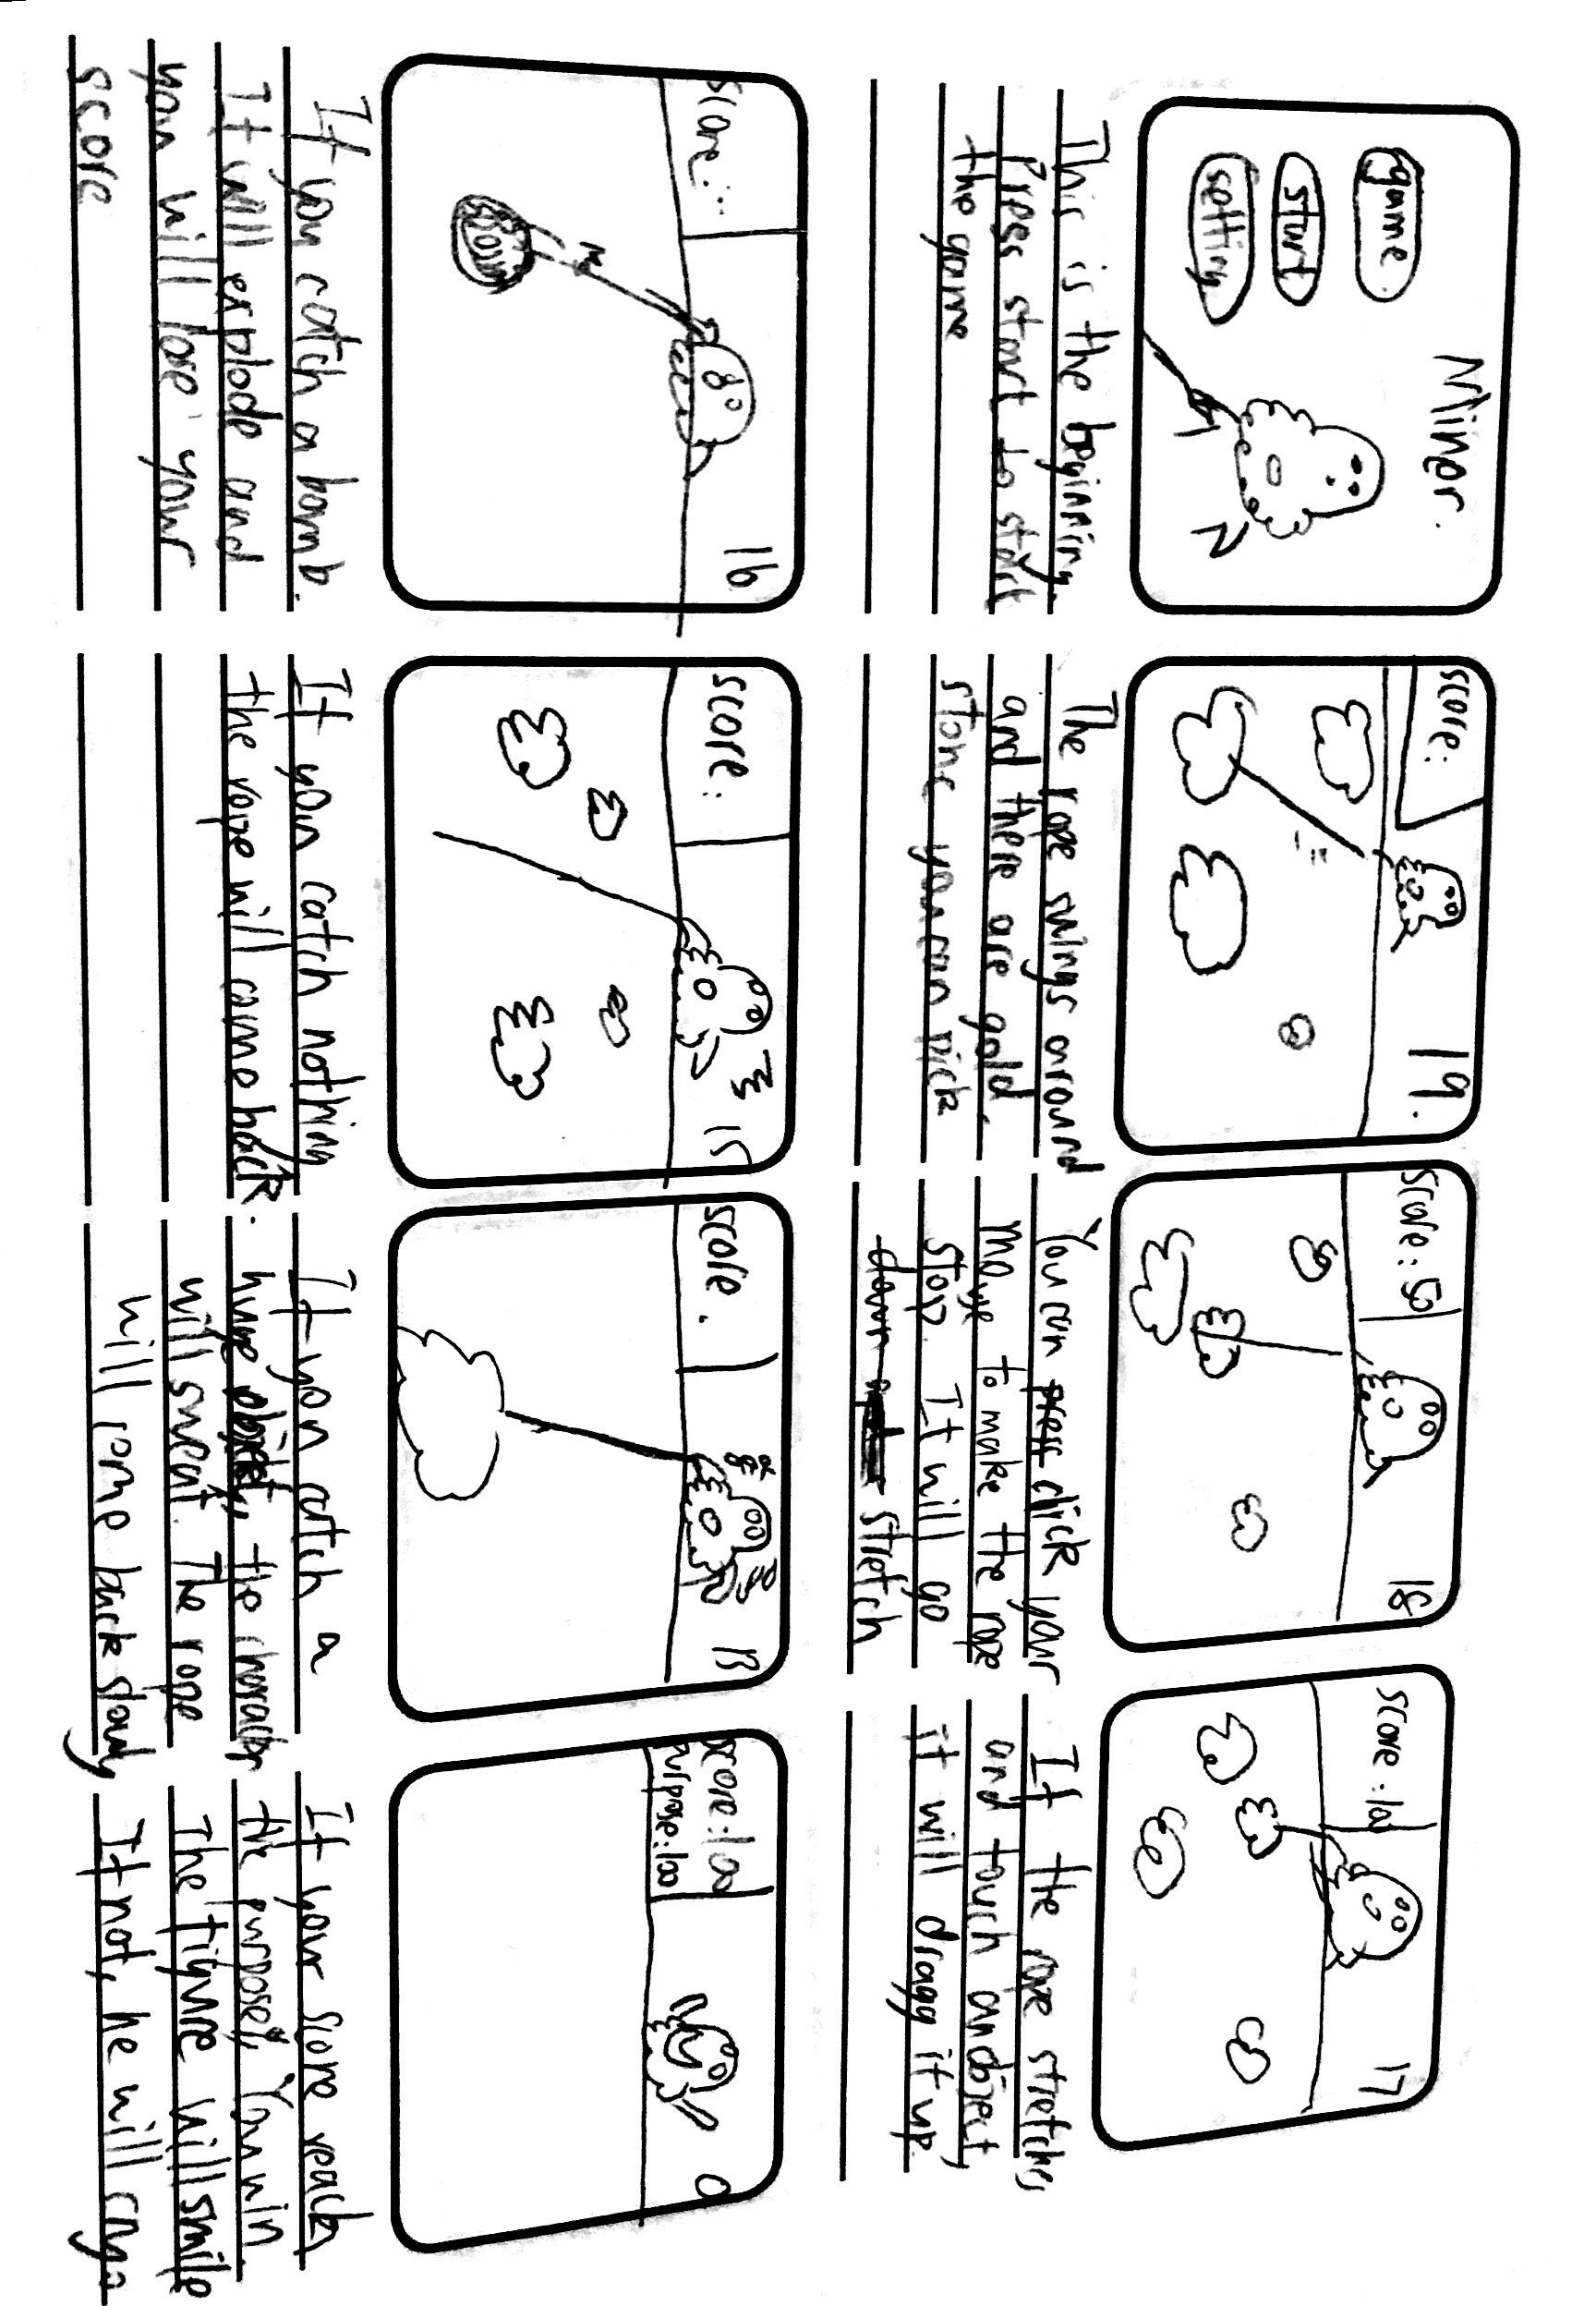 Miner.
game
start
setting
This is the beginning.
Press start to start
the game
score:
19.
The rope swings around
and there are gold,
stone you can pick
Score: 50
18
You can press click your
mouse to make the rope
stop. It will go
down stretch
score: 100
17
If the rope stretches
and touch an object,
it will dragg it up.
score:..
16
boom
If you catch a bomb.
It will explode and
you will lose your
score
score:
15
If you catch nothing
the rope will come back.
score.
13
If you catch a
huge object, the character
will sweat. The rope
will come back slowly
score: 100
purpose: 100
0
If your score reaches
the purpose, You win
The figure will smile
If not, he will cry.